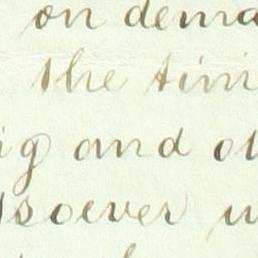 on dema
the tim
ig and ot
soever w